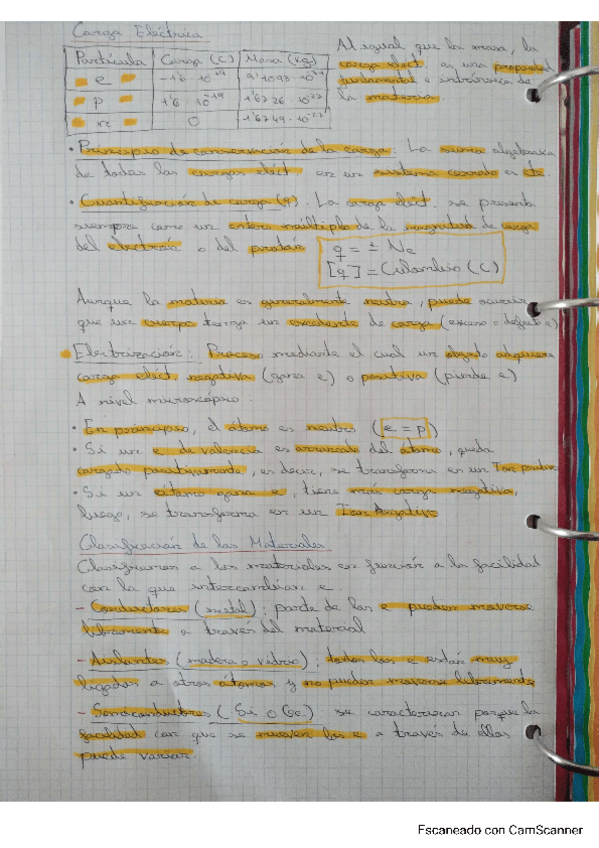 Carga Eléctrica
Partícula Carga (C) Masa (kg)
e -1'6 · 10⁻¹⁹ 9'1093 · 10⁻³¹
p +1'6 · 10⁻¹⁹ 1'6726 · 10⁻²⁷
n 0 1'6749 · 10⁻²⁷
Al igual que la masa, la
carga eléct. es una propiedad
fundamental e intrínseca de
la materia.
• Principio de conservación de la carga: La suma algebraica
de todas las cargas eléct. en un sistema cerrado es cte.
• Cuantificación de carga (q): La carga eléct. se presenta
siempre como un entero múltiplo de la magnitud de carga
del electrón o del protón
q = ± Ne
[q] = Culombio (C)
Aunque la materia es generalmente neutra, puede ocurrir
que un cuerpo tenga un excedente de carga (exceso o defecto e)
• Electrización: Proceso mediante el cual un objeto adquiere
carga eléct. negativa (gana e) o positiva (pierde e)
A nivel microscópico:
• En principio, el átomo es neutro (e = p)
• Si un e de valencia es arrancado del átomo, queda
cargado positivamente, es decir, se transforma en un Ion positivo
• Si un átomo gana e, tiene más carga negativa,
luego, se transforma en un Ion Negativo
Clasificación de los Materiales
Clasificamos a los materiales en función a la facilidad
con la que intercambian e
- Conductores (metal): parte de los e pueden moverse
libremente a través del material
- Aislantes (madera o vidrio): todos los e están muy
ligados a otros átomos y no pueden moverse libremente
- Semiconductores (Si o Ge): se caracterizan porque la
facilidad con que se mueven los e a través de ellos
puede variar.
Escaneado con CamScanner